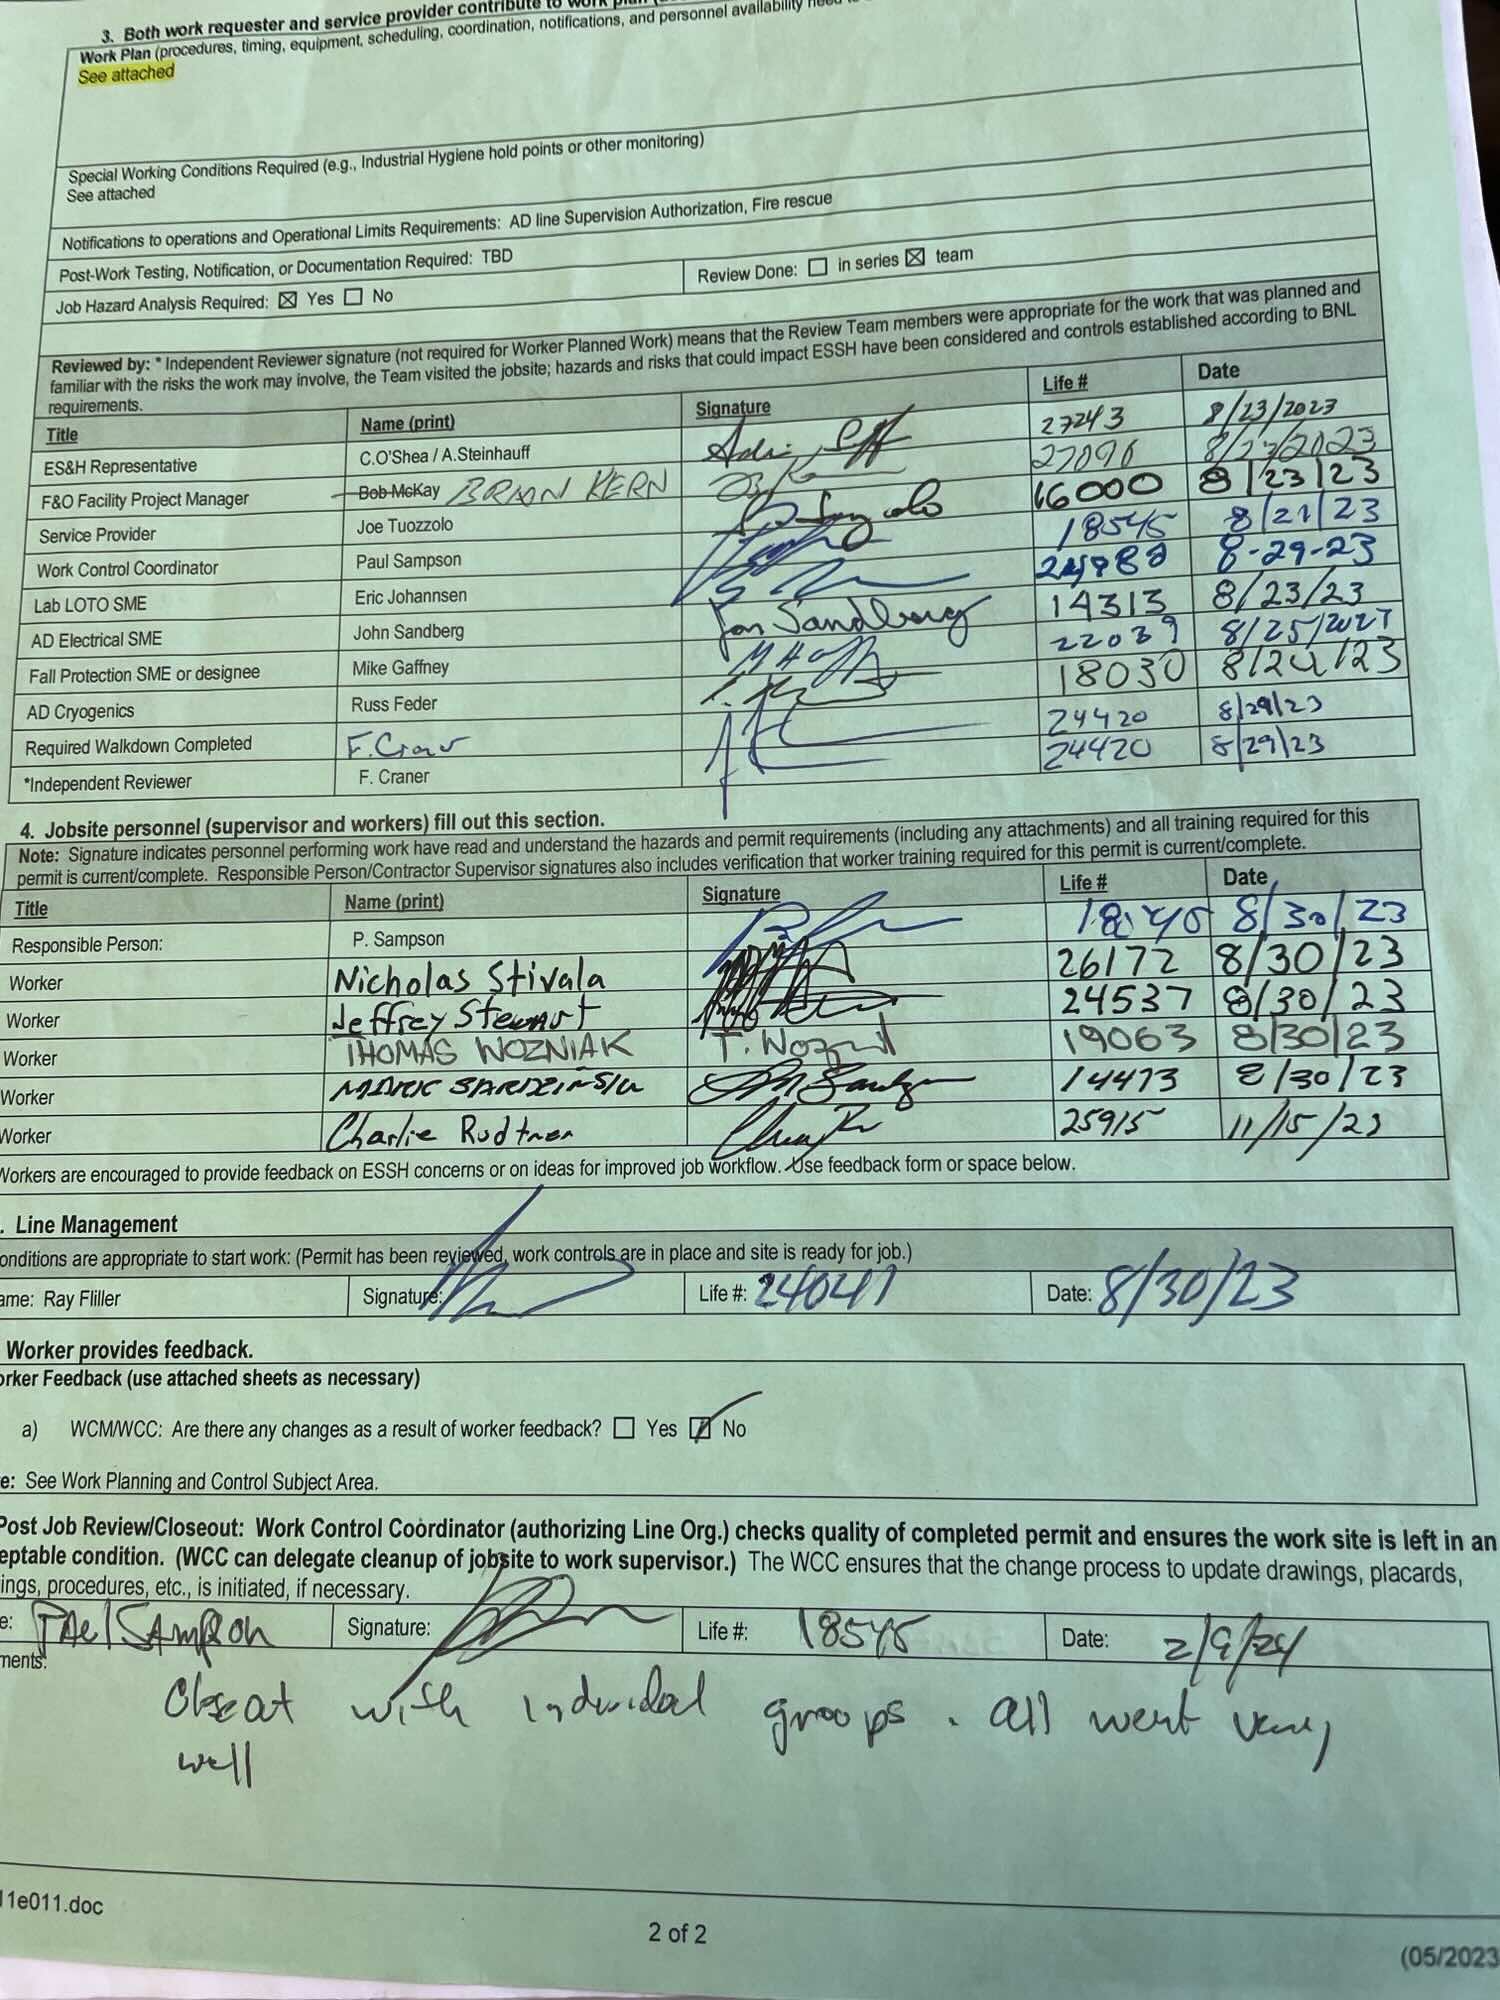 3. Both work requester and service provider contribute to work plan
Work Plan (procedures, timing, equipment, scheduling, coordination, notifications, and personnel availability need to
See attached
Special Working Conditions Required (e.g., Industrial Hygiene hold points or other monitoring)
See attached
Notifications to operations and Operational Limits Requirements: AD line Supervision Authorization, Fire rescue
Post-Work Testing, Notification, or Documentation Required: TBD
Review Done: ☐ in series ☒ team
Job Hazard Analysis Required: ☒ Yes ☐ No
Reviewed by: * Independent Reviewer signature (not required for Worker Planned Work) means that the Review Team members were appropriate for the work that was planned and
familiar with the risks the work may involve, the Team visited the jobsite; hazards and risks that could impact ESSH have been considered and controls established according to BNL
requirements.
Title Name (print) Signature Life # Date
ES&H Representative C.O'Shea / A.Steinhauff 27243 8/23/2023
F&O Facility Project Manager Bob McKay BRIAN KERN 27096
Service Provider Joe Tuozzolo 16000 8/23/23
Work Control Coordinator Paul Sampson 18545 8/21/23
Lab LOTO SME Eric Johannsen 8-29-23
AD Electrical SME John Sandberg Jon Sandberg 14313 8/23/23
Fall Protection SME or designee Mike Gaffney 22039
AD Cryogenics Russ Feder 18030
Required Walkdown Completed F. Craner 24420 8/29/23
*Independent Reviewer F. Craner 24420 8/29/23
4. Jobsite personnel (supervisor and workers) fill out this section.
Note: Signature indicates personnel performing work have read and understand the hazards and permit requirements (including any attachments) and all training required for this
permit is current/complete. Responsible Person/Contractor Supervisor signatures also includes verification that worker training required for this permit is current/complete.
Title Name (print) Signature Life # Date
Responsible Person: P. Sampson 8/30/23
Worker Nicholas Stivala 26172 8/30/23
Worker Jeffrey Stewart 24537 8/30/23
Worker THOMAS WOZNIAK T. Wozniak 19063 8/30/23
Worker MARK 14473 8/30/23
Worker Charlie Rudtner 25915 11/15/23
Workers are encouraged to provide feedback on ESSH concerns or on ideas for improved job workflow. Use feedback form or space below.
. Line Management
onditions are appropriate to start work: (Permit has been reviewed, work controls are in place and site is ready for job.)
ame: Ray Fliller Signature: Life #: 24041 Date: 8/30/23
Worker provides feedback.
orker Feedback (use attached sheets as necessary)
a) WCM/WCC: Are there any changes as a result of worker feedback? ☐ Yes ☑ No
e: See Work Planning and Control Subject Area.
Post Job Review/Closeout: Work Control Coordinator (authorizing Line Org.) checks quality of completed permit and ensures the work site is left in an
eptable condition. (WCC can delegate cleanup of jobsite to work supervisor.) The WCC ensures that the change process to update drawings, placards,
ings, procedures, etc., is initiated, if necessary.
e: Paul Sampson Signature: Life #: 18545 Date: 2/9/24
ments:
with individual groups. all went very
well
11e011.doc
2 of 2
(05/2023